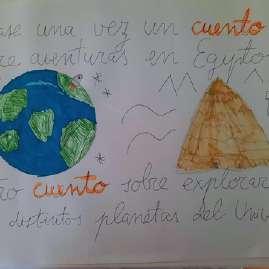 ase una vez un cuento
re aventuras en Egypto
ro cuento sobre explorar
distintos planetas del Univ